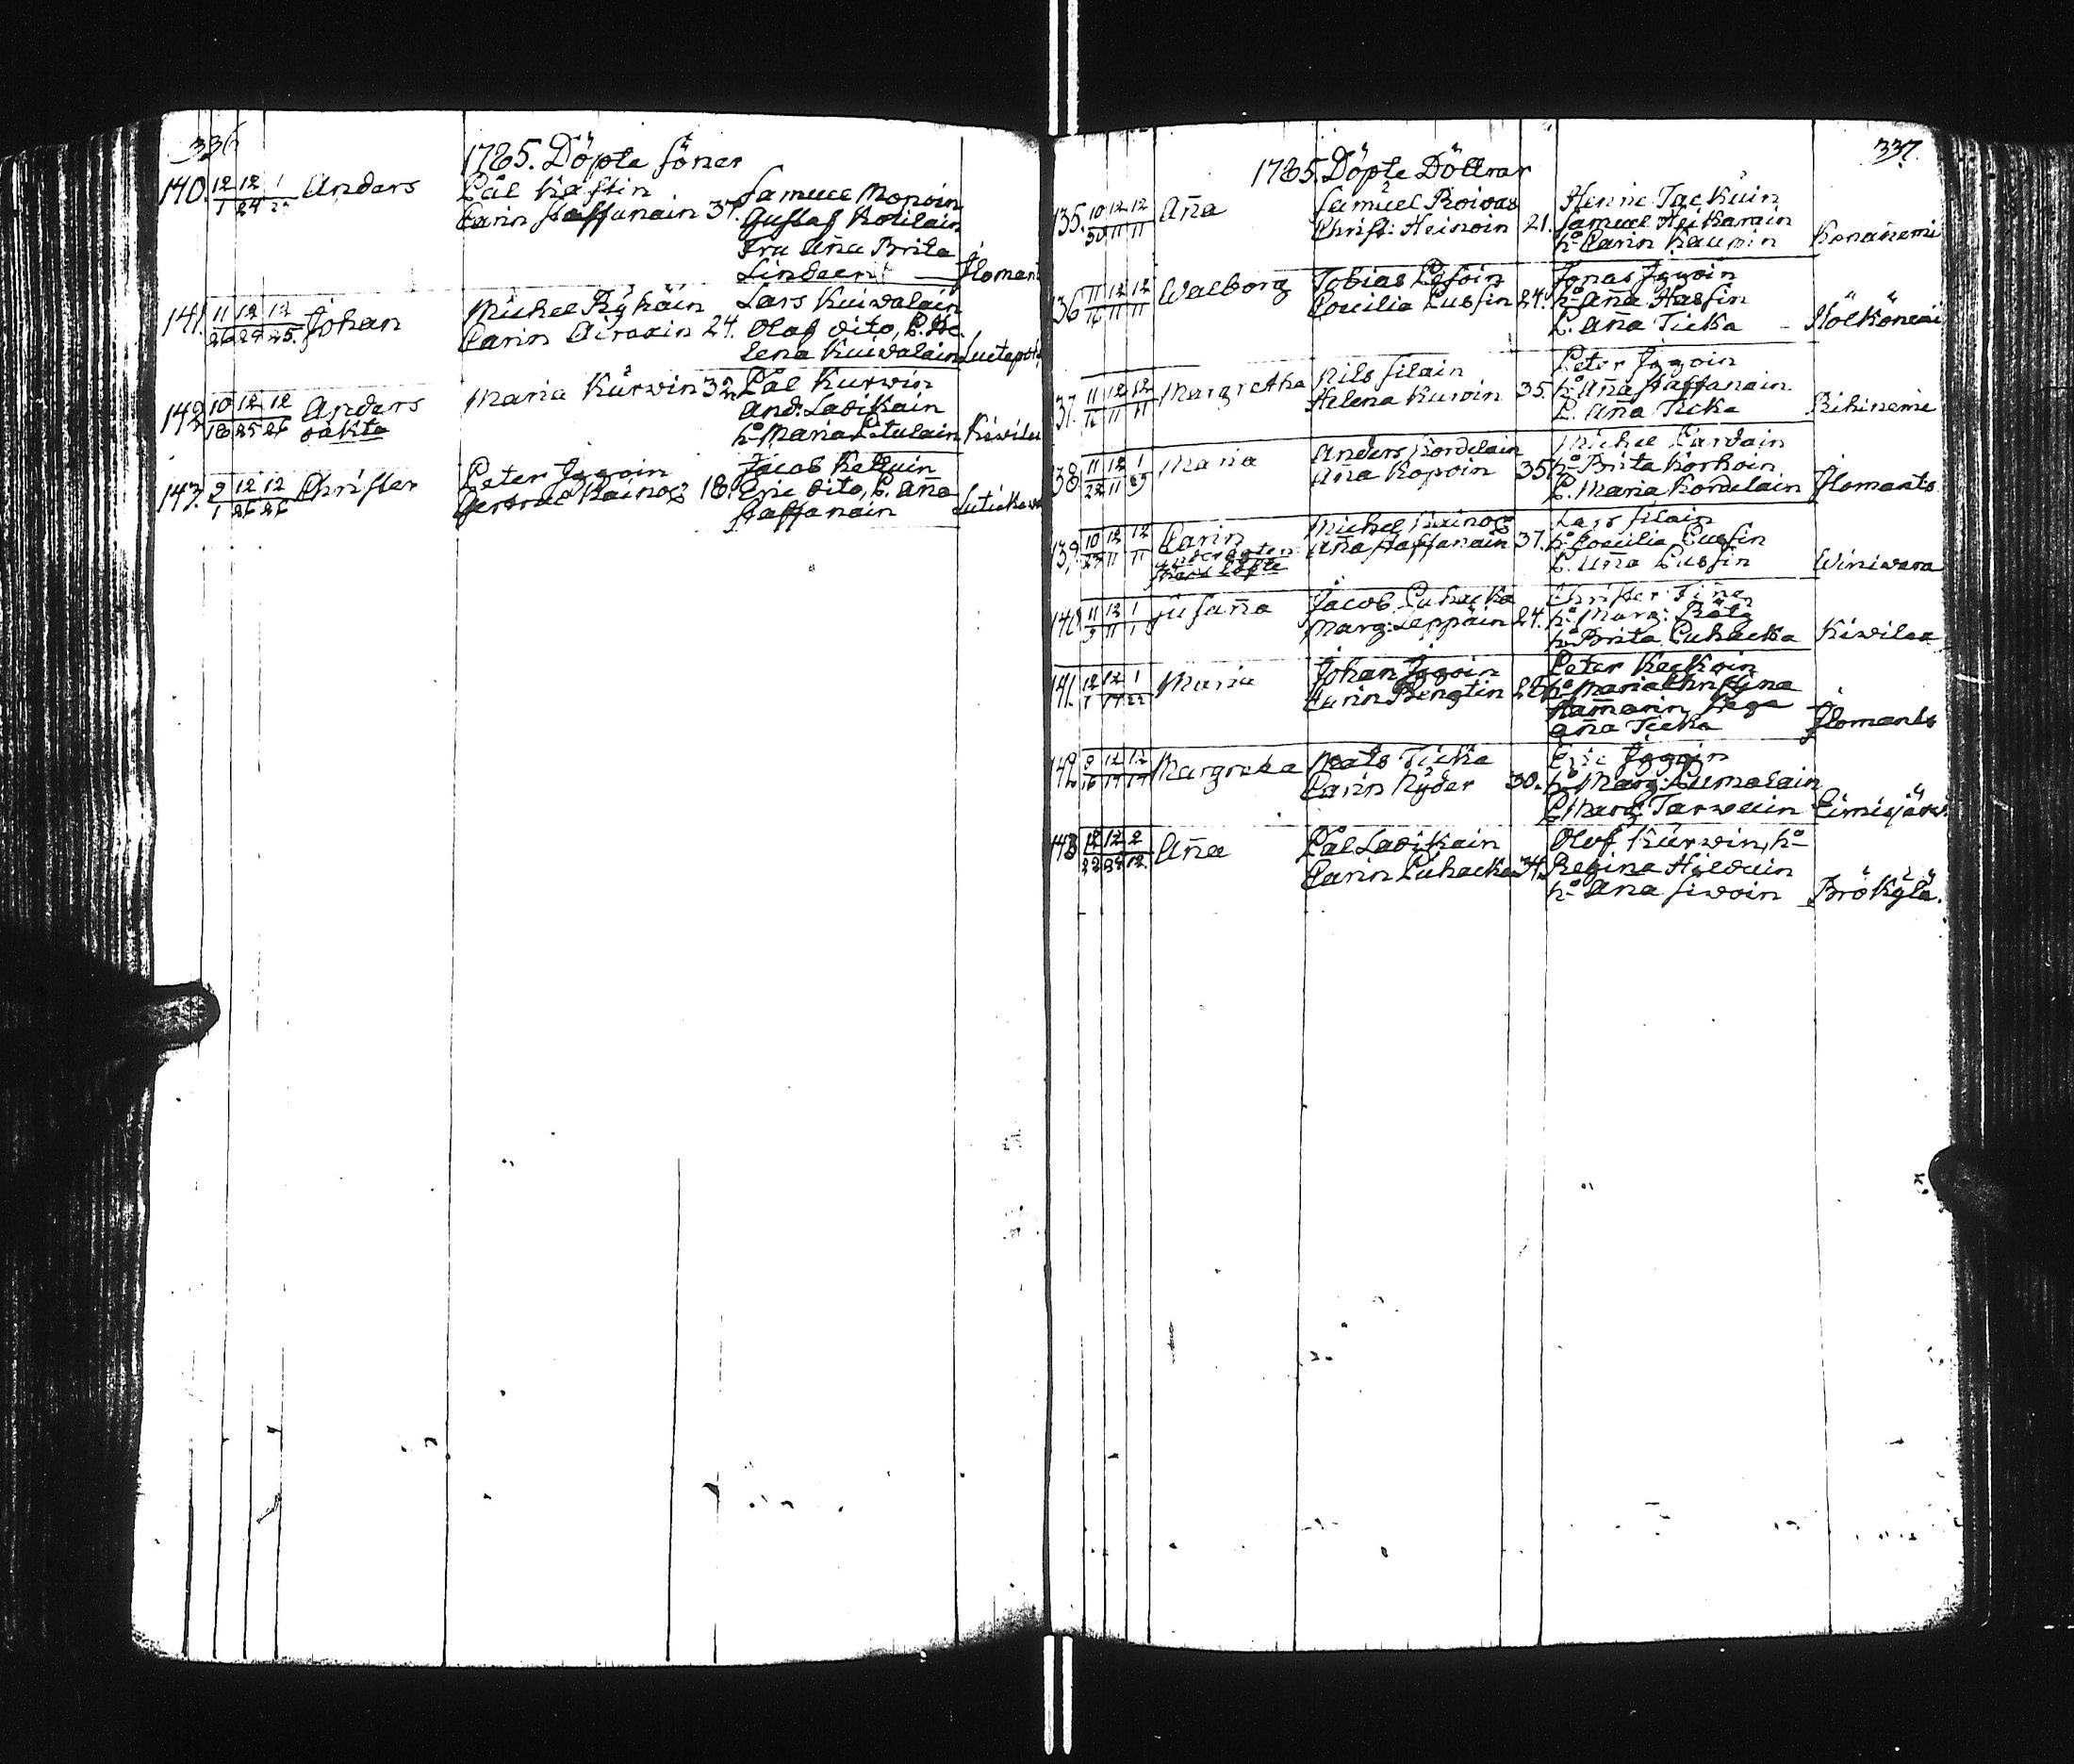 336
1785. Döpte söner
140. 12/1 12/24 1/22 Anders
Pål Hassin
Carin Staffanain 37.
Samuel Monoin
Gustaf Kotilain
Fru Aña Brita
Lindeen
Ilomants
141. 11/26 12/24 12/25. Johan
Michel Ryhäin
Carin Airaxin 24.
Lars Kuivalain
Olof dito, P. He
lena Kuivalain
142 10/18 12/25 12/26 Anders
oäkta
Maria Kurwin 32
Pål Kurwin
And: Lavikain
ho Maria
143. 9/1 12/26 12/26 Christer
Peter Iggoin
Gertrud Kainog 18.
Jacob Kettuin
Eric dito, P. Aña
Staffanain
337.
1785. Döpte Döttrar
135. 10/30 12/11 12/11 Aña
Samuel Roivas
Christ: Heinoin 21.
Henric Tackuin
Samuel Heikarain
ho Carin Kaupin
Konañemi
136 11/16 12/11 12/11 Walborg
Tobias
Coecilia Pussin 24.
Jonas Iggoin
ho Aña Hassin
P. Aña Ticka
37. 11/12 12/11 12/11 Margretha
Nils Silain
Helena Kurvin 35.
Peter Iggoin
ho Aña Staffanain
P. Aña Ticka
Rihinemi
38. 11/22 12/11 1/29 Maria
Anders Kordelain
Aña Kopoin 35
Michel Pardain
ho Brita Korhoin
P. Maria Kordelain
Ilomants
139. 10/23 12/11 12/11 Carin
Michel Kainog
Aña Staffanain 37.
Lars Silain
ho Coecilia Pussin
P. Aña Pussin
Winiwara
140 11/9 12/11 1/1 Susaña
Jacob Puhacka
Marg: Leppäin 24.
Christer
ho Marg:
ho Brita Puhacka
Kivilax
141. 12/1 12/17 1/22 Maria
Johan Iggoin
Carin Bengtin 28
Peter Keckoin
ho Maria Christina
Ham̄arin
Aña Ticka
Ilomants
142 9/16 12/17 12/17 Margreta
Mats Ticka
Carin Ryder 30.
Eric Iggoin
ho Marg: Pumalain
P. Marg: Tarwain
143 12/22 12/24 2/12. Aña
Pål Lavikain
Carin Puhacka 34.
Olof Kurwin, ho
Regina Hilduin
ho Ana Sivoin
Brökylä.